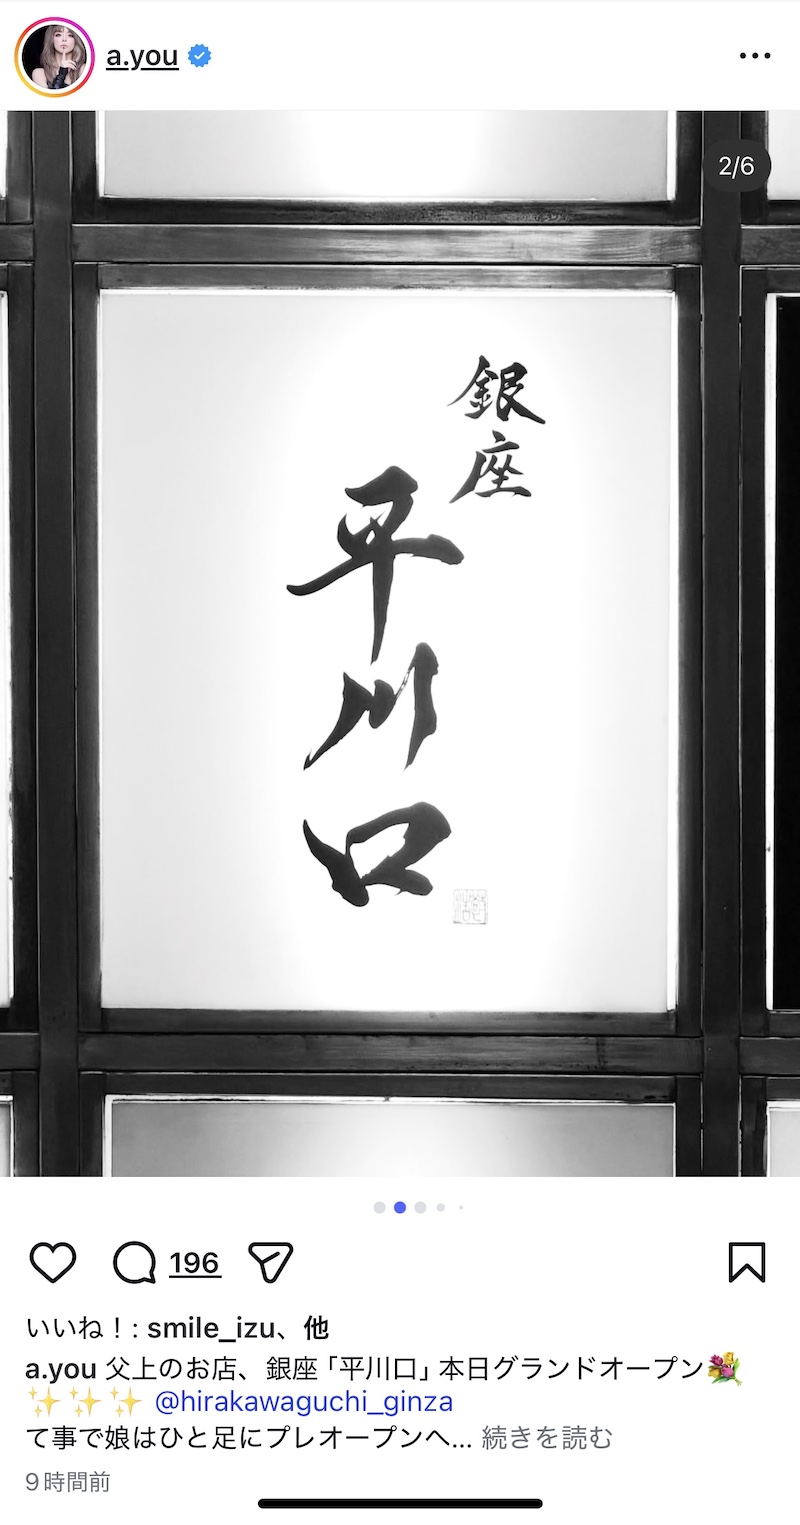 a.you
2/6
銀座
平川口
196
いいね！: smile_izu、他
a.you 父上のお店、銀座「平川口」本日グランドオープン💐
✨✨✨ @hirakawaguchi_ginza
て事で娘はひと足にプレオープンへ... 続きを読む
9時間前